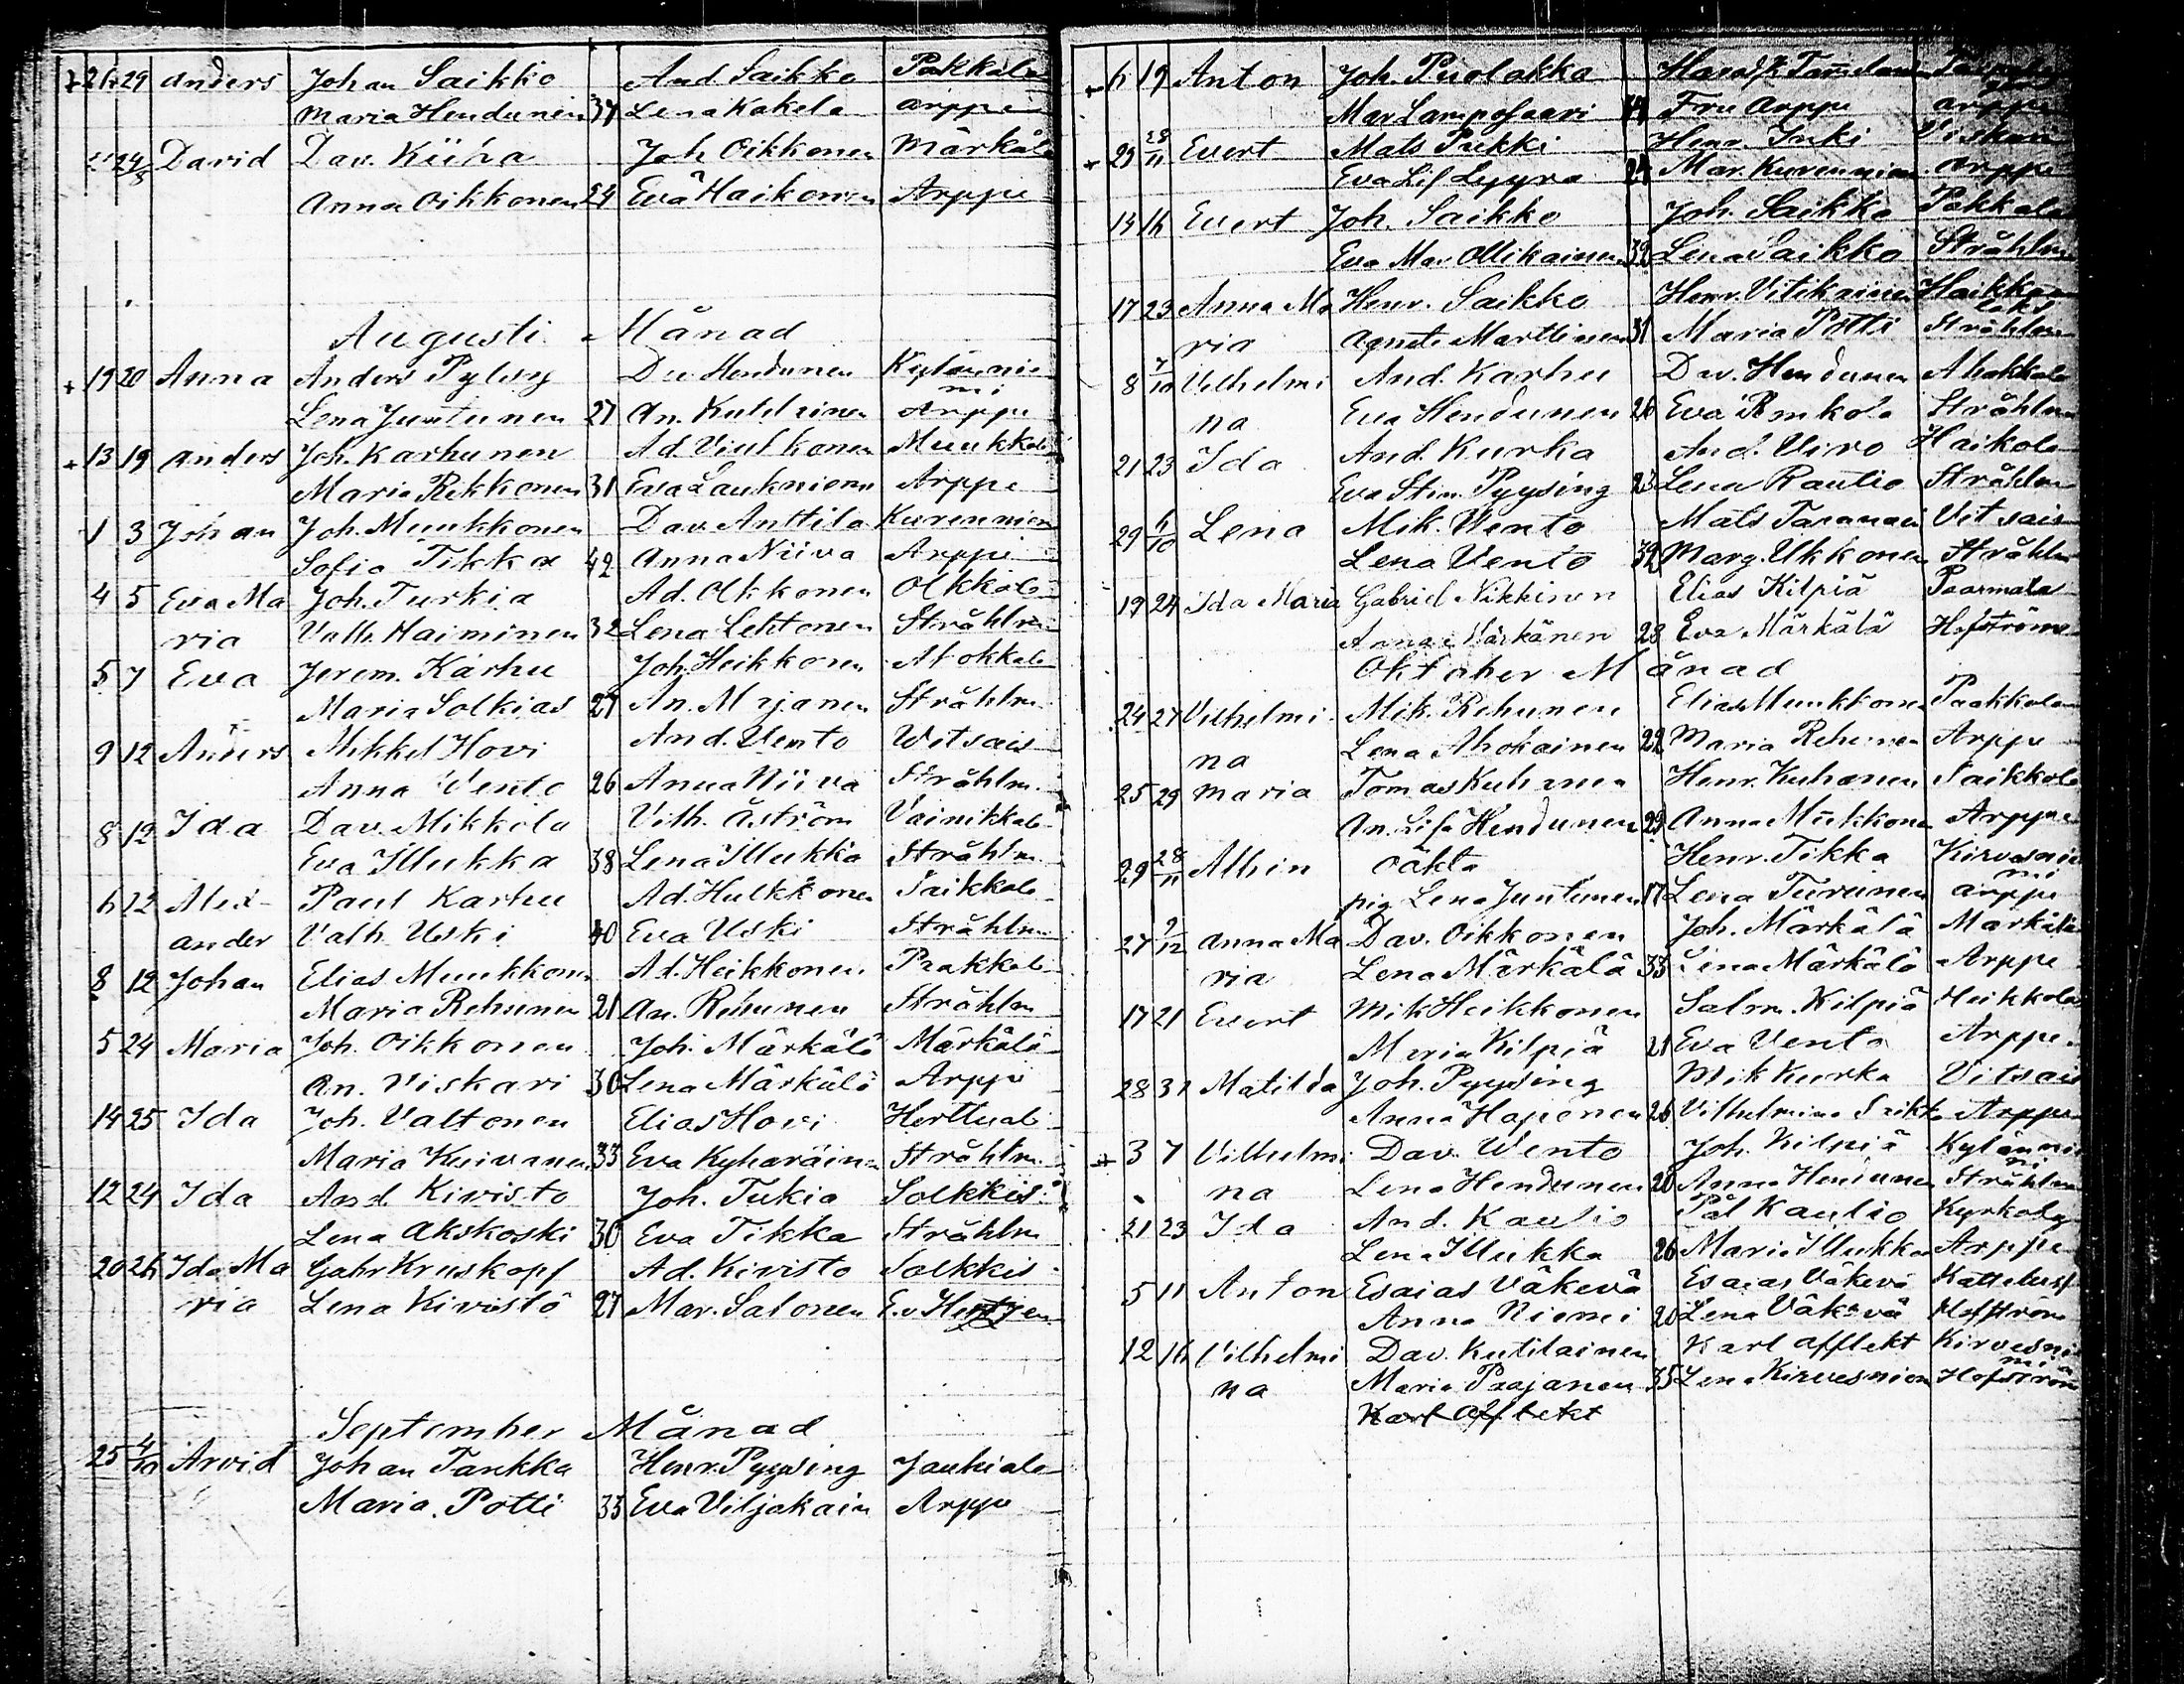 26 29 Anders Johan Saikko And. Saikko Pakkala
Maria Hendunen 37 Lena Kakela Arppe
24/8 David Dav. Kiiha Joh Oikkonen Märkälä
Anna Oikkonen 24 Eva Haikonen Arppe
Augusti Månad
+ 19 20 Anna Anders Pylsy Dv Hendunen Kylänniemi
Lena Juntunen 27 An. Kutilainen Arppe
+ 13 19 Anders Joh. Karhunen Ad. Viulkonen Muukkola
Maria Rikkonen 31 Eva Laukniemi Arppe
1 3 Johan Joh. Muukkonen Dav. Anttila Kurenniem
Sofia Tikka 42 Anna Niiva Arppe
4 5 Eva Ma Joh. Turkia Ad. Olkkonen Olkkola
ria Valb. Haiminen 32 Lena Lehtonen Stråhlm
5 7 Eva Jerem. Karhu Joh. Heikkonen Alokkala
Maria Solkias 27 An. Majanen Stråhlm
9 12 Anders Mikkel Hovi And. Vento Witsais
Anna Vento 26 Anna Niiva Stråhlm
8 12 Ida Dav. Mikkola Vilh. Åström Vainikkala
Eva Illukka 38 Lena Illukka Stråhlm
6 12 Alex- Paul Karhu Ad. Hulkkonen Saikkola
ander Valb. Uski 40 Eva Uski Stråhlm
8 12 Johan Elias Muukkonen Ad. Heikkonen Paakkola
Maria Rehunen 21 An. Rehunen Stråhlm
5 24 Maria Joh. Oikkonen Joh. Märkälä Märkälä
An. Viskari 30 Lena Märkälä Arppe
14 25 Ida Joh. Valtonen Elias Hovi Herttuala
Maria Kuivanen 33 Eva Kyharäinen Stråhlm
12 24 Ida And. Kivisto Joh. Tukia Solkkis
Lena Akskoski 30 Eva Tikka Stråhlm
20 26 Ida Ma Gabr Kruskopf Ad. Kivisto Solkkis
ria Lena Kivistö 27 Mar. Salonen E. v Hertzen
September Månad
25 4/10 Arvid Johan Tarkka Henr. Pyysing Jauhiala
Maria Potti 33 Eva Viljakain Arppe
6 19 Anton Joh. Puolakka
Mar Lamposaari Fru Arppe Arppe
+ 25 28/11 Evert Mats Pukki Henr. Inki Viskari
Eva Lis Lyyra 24 Mar. Kurenniem Arppe
14 16 Evert Joh. Saikko Joh. Saikko Pakkala
Eva Mar Ollikainen 32 Lena Saikko Stråhlm
17 23 Anna Ma Henr. Saikko Henr. Vitikainen Haikkanlaks
ria Agneta Marttinen 31 Maria Potti Stråhlm
8 7/10 Vilhelmi And. Karhu Dav. Hendunen Alokkala
na Eva Hendunen 26 Eva Rinkola Stråhlm
21 23 Ida And. Kurka And. Viro Haikola
Eva Stin. Pyysing 23 Lena Rautio Stråhlm
29 6/10 Lena Mik. Vento Mats Taranan Vitsais
Lena Vento 32 Marg. Ukkonen Stråhlm
19 24 Ida Maria Gabriel Nikkinen Elias Kilpiä Paarmala
Anna Märkänen 28 Eva Märkälä Hofström
Oktober Månad
24 27 Vilhelmi Mik. Rehunen Elias Muukkonen Paakkola
na Lena Ahokainen 22 Maria Rehunen Arppe
25 29 Maria Tomas Kuhanen Henr. Kuhanen Saikkola
An. Lisa Hendunen 29 Anna Mukkonen Arppe
29 28/11 Albin oäkta Henr. Tikka Kirvesniemi
pig Lena Juntunen 17 Lena Turunen Arppe
27 9/12 Anna Ma Dav. Oikkonen Joh. Märkälä Märkälä
ria Lena Märkälä 33 Lena Märkälä Arppe
17 21 Evert Mik Heikkonen Salm. Kilpiä Heikkola
Maria Kilpiä 21 Eva Vento Arppe
28 31 Matilda Joh. Pyysing Mik Kurka Vitsais
Anna Haponen 26 Vilhelmina Saikko Arppe
+ 3 7 Vilhelmi Dav. Wento Joh. Kilpiä Kylänniemi
na Lena Hendunen 20 Anna Hendunen Stråhlm
21 23 Ida And. Kaulio Pål Kaulio Kyrkoby
Lena Illukka 26 Maria Illukka Arppe
5 11 Anton Esaias Väkevä Esaias Väkevä
Anna Niemi 20 Lena Väkevä Hofström
12 16 Vilhelmi Dav. Kutilainen Karl Afflekt Kirvesniemi
na Maria Paajanen 35 Lena Kirvesniem Hofström
Karl Afflekt